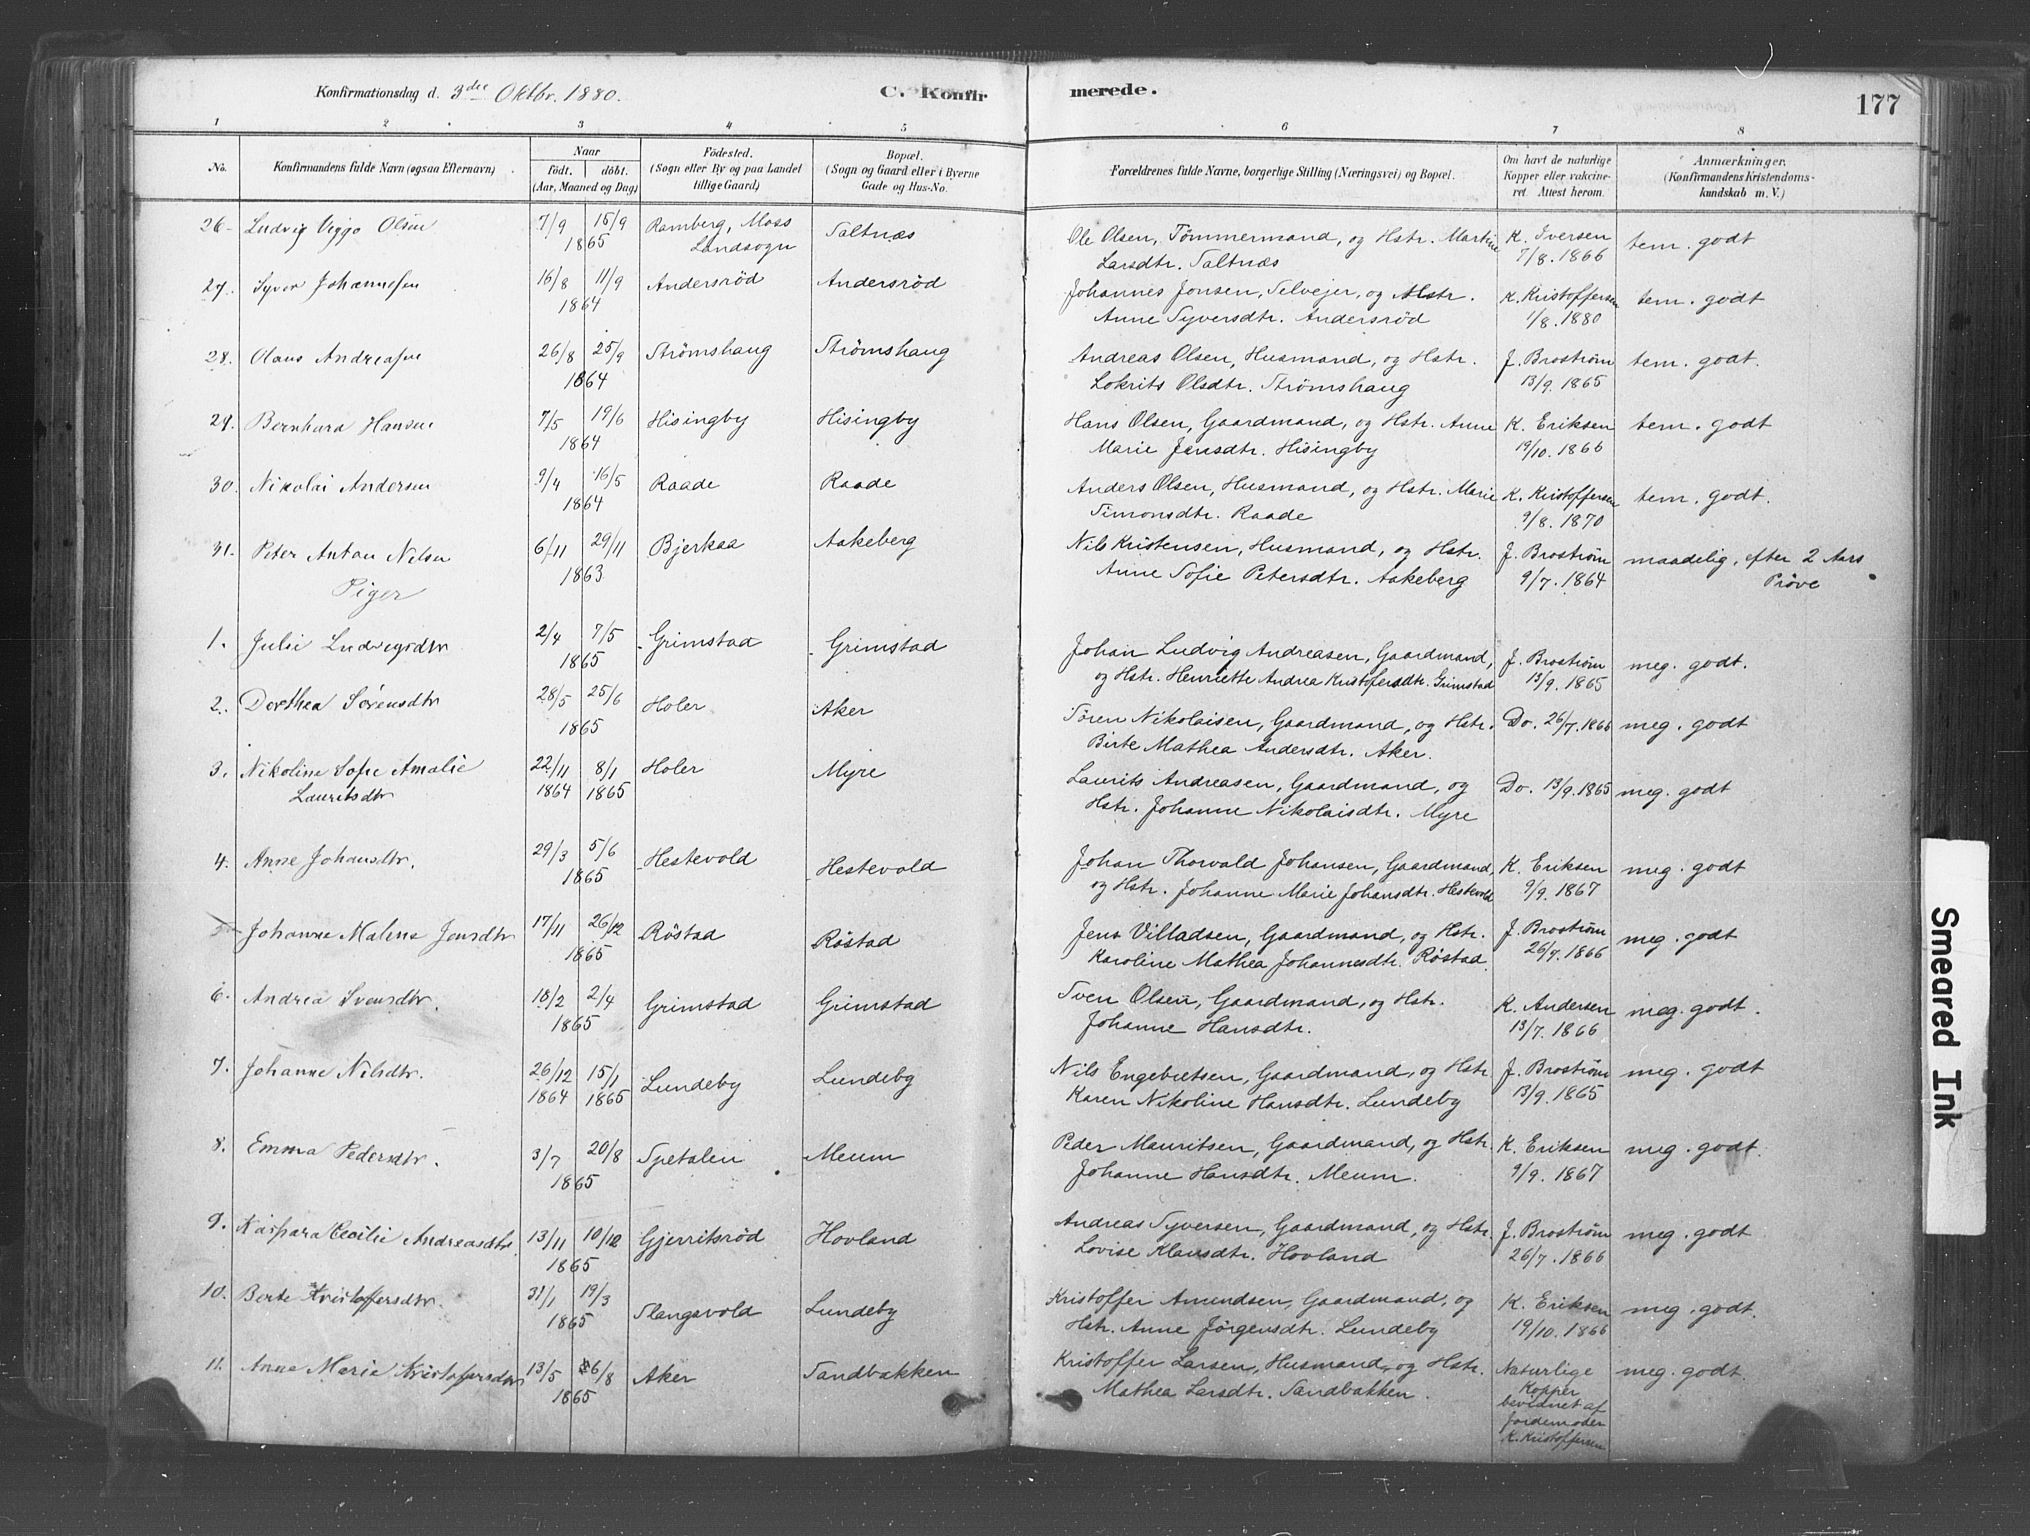 Konfirmationsdag d. 3die Oktbr. 1880. C. Konfir merede. 177
1 2 3 4 5 6 7 8
No. Konfirmandens fulde Navn (ogsaa Efternavn) Naar födt. döbt. (Aar, Maaned og Dag) Födested. (Sogn eller By og paa Landet tillige Gaard) Bopæl. (Sogn og Gaard eller i Byerne Gade og Hus-No. Forældrenes fulde Navne, borgerlige Stilling (Næringsvei) og Bopæl. Om havt de naturlige Kopper eller vakcineret Attest herom. Anmærkninger. (Konfirmandens Kristendomskundskab m. V.)
26. Ludvig Viggo Olsen 7/9 15/9 1865 Ramberg, Moss Landsogn Saltnæs Ole Olsen, Tömmermand, og Hstr. Martine Larsdtr. Saltnæs K. Iversen 7/8. 1866 tem. godt
27. Syver Johannesen 16/8 11/9 1864 Andersröd Andersröd Johannes Jonsen, Selvejer, og Hstr. Anne Syversdtr. Andersröd K. Kristoffersen 1/8. 1880 tem. godt
28. Olaus Andreasen 26/8 25/9 1864 Strömshaug Strömshaug Andreas Olsen, Husmand, og Hstr. Lokrits Olsdtr. Strömshaug J. Broström 13/9. 1865 tem. godt.
29. Bernhard Hansen 7/5 19/6 1864 Hisingby Hisingby Hans Olsen, Gaardmand, og Hstr. Anne Marie Jensdtr. Hisingby K. Eriksen 19/10. 1866 tem. godt
30. Nikolai Andersen 9/4 16/5 1864 Raade Raade Anders Olsen, Husmand, og Hstr. Marie Simonsdtr. Raade K. Kristoffersen 9/8. 1870 tem. godt.
31. Peter Anton Nilsen 6/11 29/11 1863 Bjerkaa Aakeberg Nils Kristensen, Husmand, og Hstr. Anne Sofie Petersdtr. Aakeberg J. Broström 9/7. 1864 maadelig, efter 2 Aars Pröve
Piger
1. Julie Ludvigsdtr 2/4 7/5 1865 Grimstad Grimstad Johan Ludvig Andreasen, Gaardmand, og Hstr. Henriette Andrea Kristofersdtr. Grimstad J. Broström 13/9. 1865 meg. godt.
2. Dorthea Sörensdtr 28/5 25/6 1865 Holer Aker Sören Nikolaisen, Gaardmand, og Hstr. Birte Mathea Andersdtr. Aker. Do. 26/7. 1866 meg. godt
3. Nikoline Sofie Amalie Lauritsdtr 22/11 1864 8/1 1865 Holer Myre Laurits Andreasen, Gaardmand, og Hstr. Johanne Nikolaisdtr. Myre Do. 13/9. 1865 meg. godt
4. Anne Johansdtr. 29/3 5/6 1865 Hestevold Hestevold Johan Thorvald Johansen, Gaardmand, og Hstr. Johanne Marie Johansdtr. Hestevold K. Eriksen 9/9. 1867 meg. godt
Johanne Malene Jensdtr 17/11 26/12 1865 Röstad Röstad Jens Villadsen, Gaardmand, og Hstr. Karoline Mathea Johannesdtr. Röstad. J. Broström 26/7. 1866 meg. godt
6. Andrea Svensdtr. 18/2 2/4 1865 Grimstad Grimstad Sven Olsen, Gaardmand, og Hstr. Johanne Hansdtr. K. Andersen 13/7. 1866 meg. godt.
7. Johanne Nilsdtr. 26/12 1864 15/1 1865 Lundeby Lundeby Nils Engebretsen, Gaardmand, og Hstr. Karen Nikoline Hansdtr. Lundeby J. Broström 13/9. 1865 meg. godt
8. Emma Pedersdtr. 3/7 20/8 1865 Spetalen Meum Peder Mauritsen, Gaardmand, og Hstr. Johanne Hansdtr. Meum. K. Eriksen 9/9. 1867 meg. godt.
9. Kaspara Cecilie Andreasdtr. 13/11 10/12 1865 Gjerritsröd Hovland Andreas Syversen, Gaardmand, og Hstr. Lovise Klausdtr. Hovland J. Broström 26/7. 1866 meg. godt
10. Berte Kristoffersdtr. 31/1 19/3 1865 Slangsvold Lundeby Kristoffer Amundsen, Gaardmand, og Hstr. Anne Jörgensdtr. Lundeby K. Eriksen 19/10. 1866 meg. godt
11. Anne Marie Kristofersdtr 13/5 6/8 1865 Aker Sandbakken Kristoffer Larsen, Husmand, og Hstr. Mathea Larsdtr. Sandbakken. Naturlige Kopper bevidnet af Jordemoder K. Kristoffersen meg. godt.
Smeared Ink